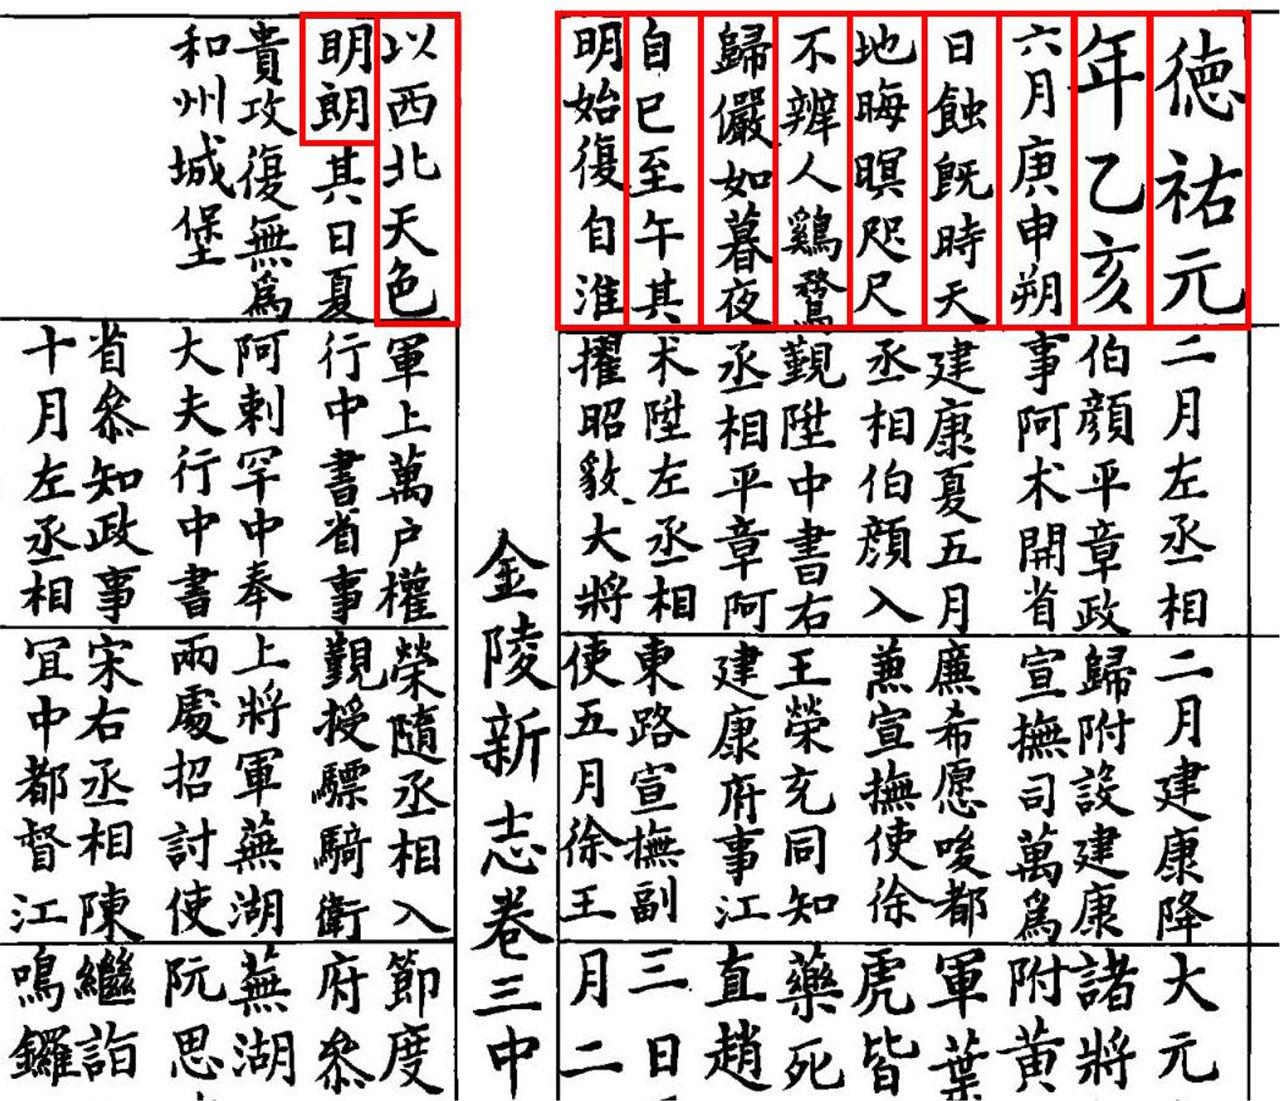 德祐元
年乙亥
六月庚申朔
日蝕既時天
地晦暝咫尺
不辨人鷄鶩
歸儼如暮夜
自巳至午其
明始復自淮
以西北天色
明朗其日夏
貴攻復無爲
和州城堡
二月左丞相
伯顔平章政
事阿术開省
建康夏五月
丞相伯顔入
覲陞中書右
丞相平章阿
术陞左丞相
擢昭毅大將
軍上萬户權
行中書省事
阿剌罕中奉
大夫行中書
省叅知政事
十月左丞相
二月建康降
歸附設建康
宣撫司萬爲
廉希愿唆都
兼宣撫使徐
王榮充同知
建康府事江
東路宣撫副
使五月徐王
榮隨丞相入
覲授驃騎衛
上將軍蕪湖
兩處招討使
宋右丞相陳
宜中都督江
大元
諸將
附黄
軍葉
虎皆
藥死
直趙
三日
月二
節度
府叅
蕪湖
阮思
繼詣
鳴鑼
金陵新志卷三中